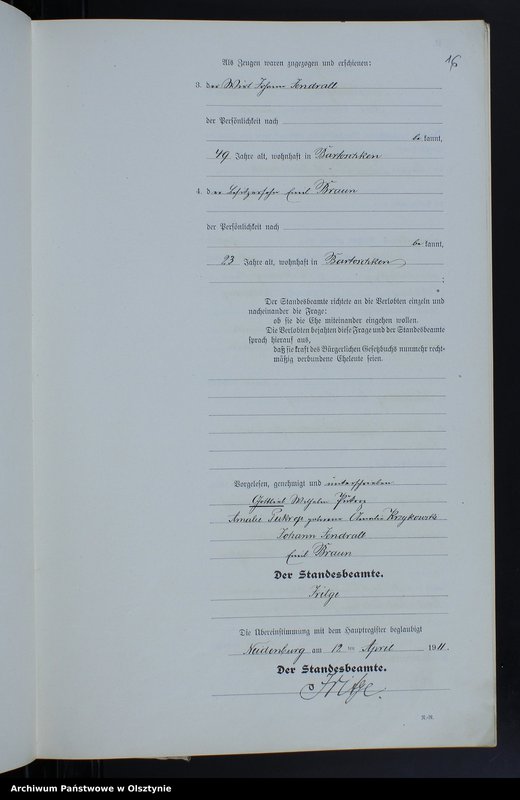 16
Als Zeugen waren zugezogen und erschienen:
3. der Wirt Johann Jendrall
der Persönlichkeit nach
be kannt,
49 Jahre alt, wohnhaft in Bartoschken
4. der Besitzersohn Emil Braun
der Persönlichkeit nach
be kannt,
23 Jahre alt, wohnhaft in Bartoschken
;
Der Standesbeamte richtete an die Verlobten einzeln und
nacheinander die Frage:
ob sie die Ehe miteinander eingehen wollen.
Die Verlobten bejahten diese Frage und der Standesbeamte
sprach hierauf aus,
daß sie kraft des Bürgerlichen Gesetzbuchs nunmehr recht-
mäßig verbundene Eheleute seien.
Vorgelesen, genehmigt und unterschrieben
Gottlieb Wilhelm
Amalie geborene Krzykowski
Johann Jendrall
Emil Braun
Der Standesbeamte.
Die Übereinstimmung mit dem Hauptregister beglaubigt
Neidenburg am 12 ten April 1911.
Der Standesbeamte.
R.-N.
Archiwum Państwowe w Olsztynie